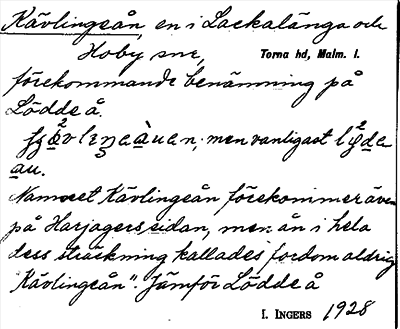 Kävlingeån, en i Lackalänga och
Hoby sne, Torna hd, Malm. l.
förekommande benämning på
Lödde å.
men vanligast
au.
Namnet Kävlingeån förekommer även
på Harjagerssidan, men ån i hela
dess sträckning kallades fordom aldrig
"Kävlingeån". Jämför Lödde å
I. INGERS 1928